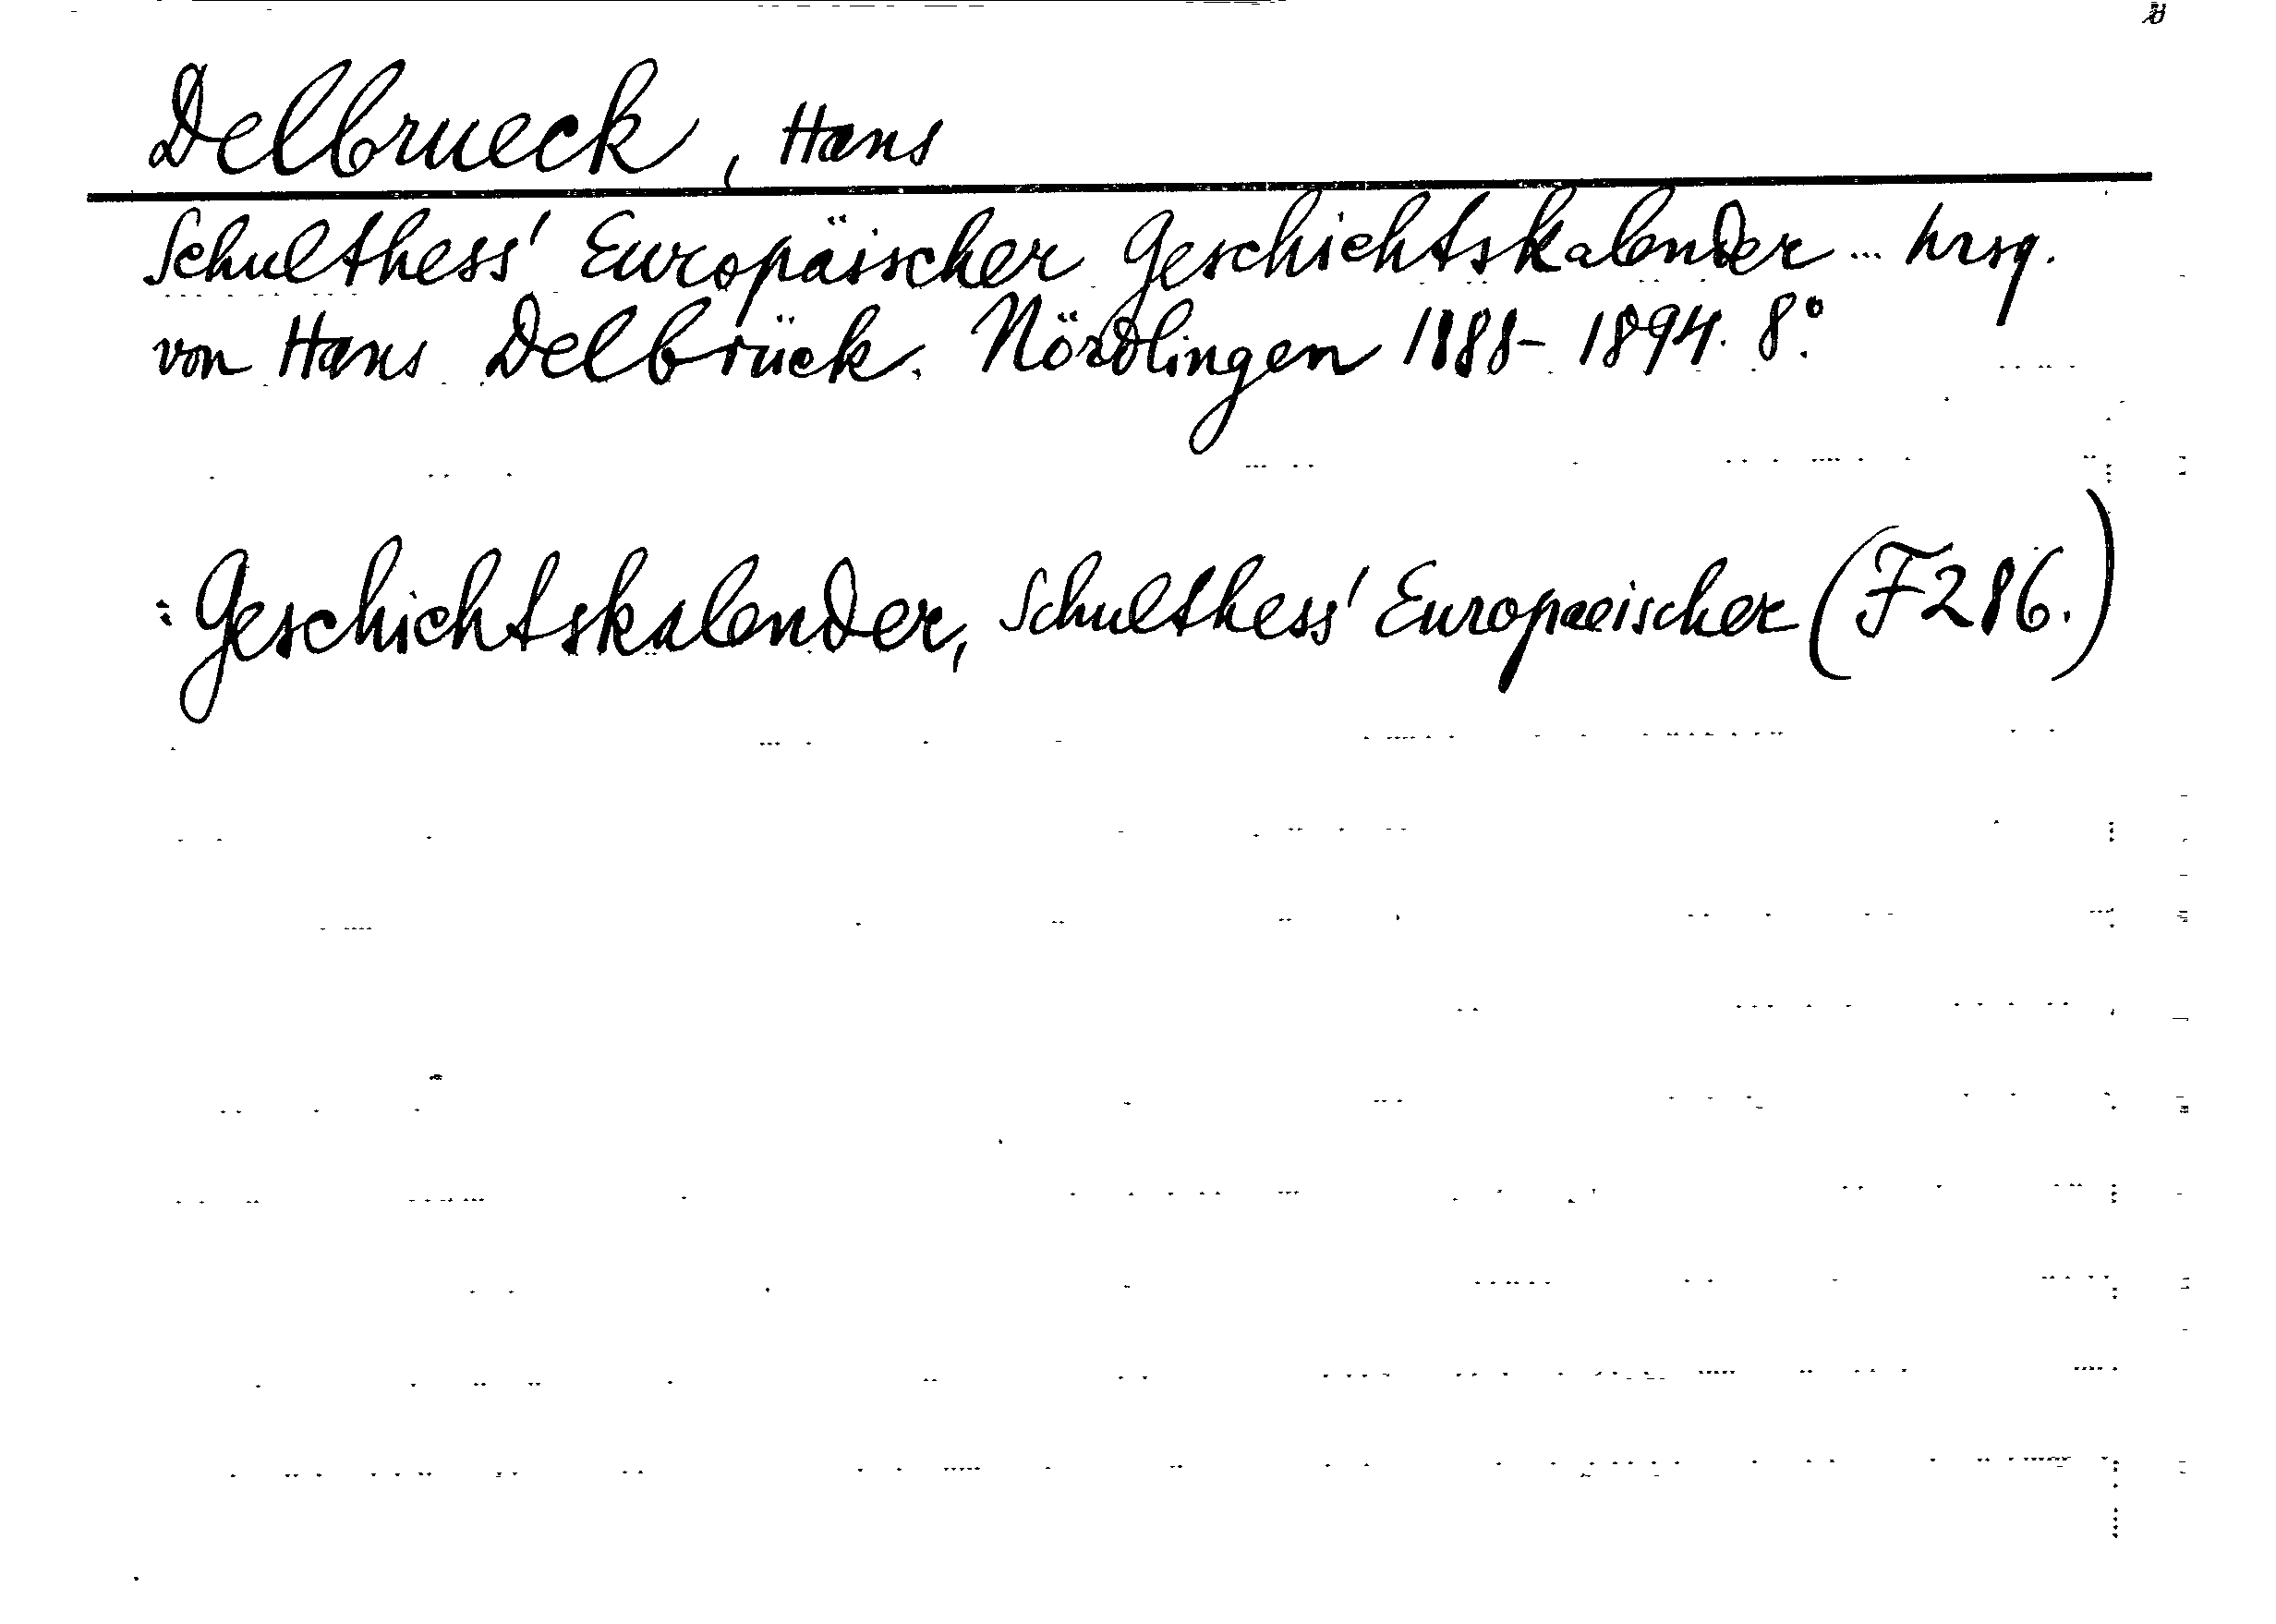 Delbrueck, Hans
Schulthess' Europäischer Geschichtskalender ... hrsg.
von Hans Delbrück. Nördlingen 1888-1894. 8°.
: Geschichtskalender, Schulthess' Europaeischer (F286.)